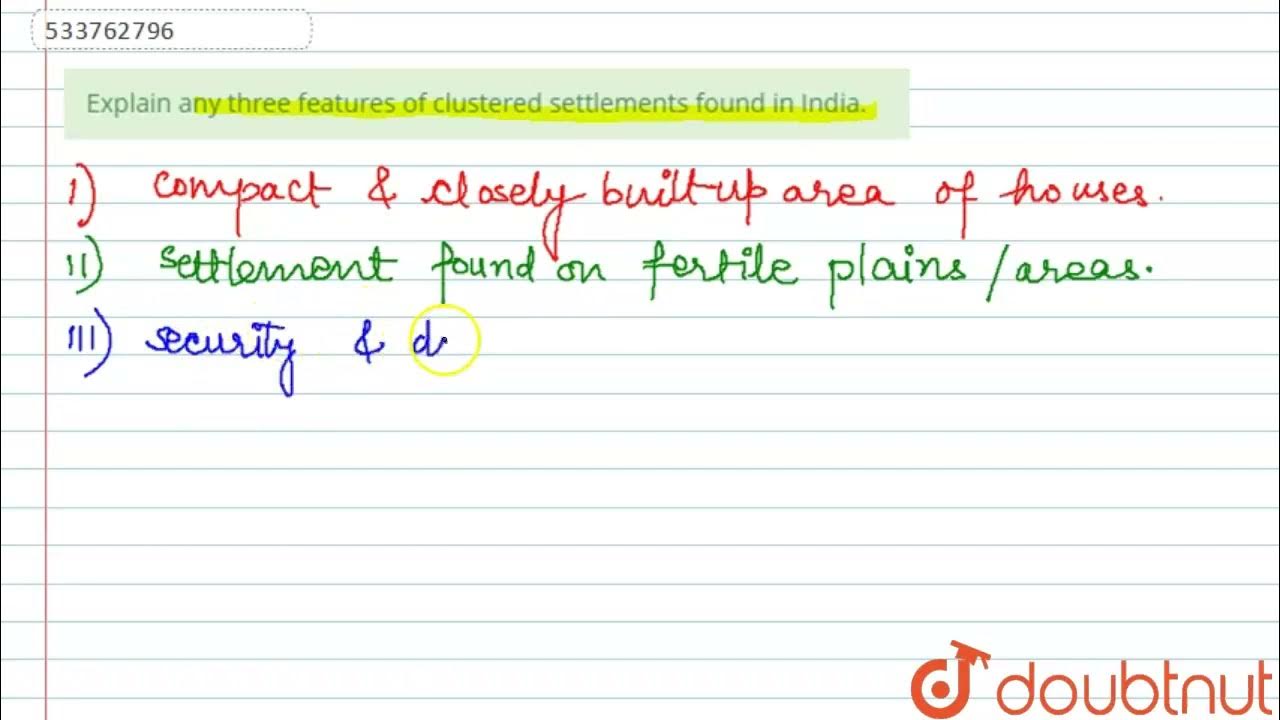 533762796
Explain any three features of clustered settlements found in India.
I) compact & closely built-up area of houses.
II) settlement found on fertile plains / areas.
III) security & d
doubtnut